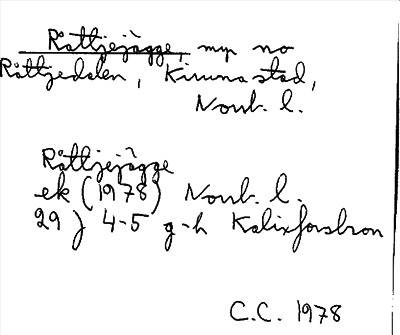 Råttjejägge, myr no
Råttjedalen, Kiruna stad,
Norrb. l.
Råttjejägge
ek (1978) Norrb. l.
29 J 4-5 g-h Kalixforsbron
C.C. 1978